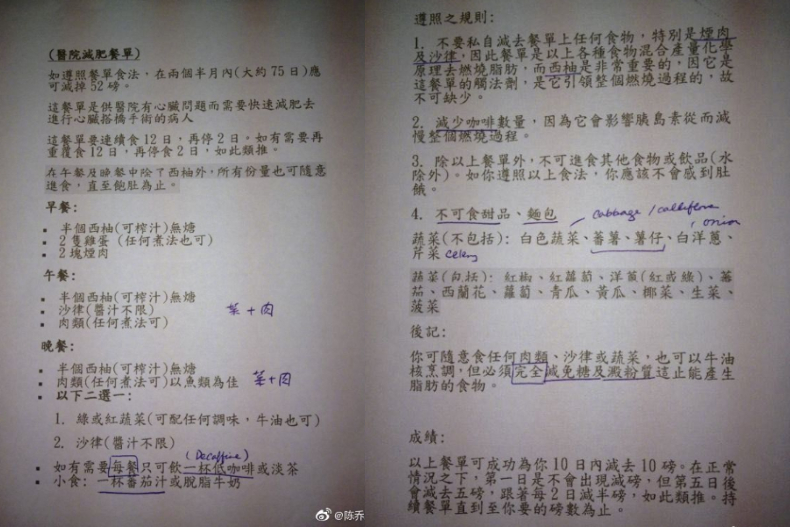 (醫院減肥餐單)
如遵照餐單食法，在兩個半月內(大約75日)應
可減掉52磅。
這餐單是供醫院有心臟問題而需要快速減肥去
進行心臟搭橋手術的病人
這餐單要連續食12日，再停2日。如有需要再
重覆食12日，再停食2日，如此類推。
在午餐及晚餐中除了西柚外，所有份量也可隨意
進食，直至飽肚為止。
早餐:
▪ 半個西柚(可榨汁)無糖
▪ 2隻雞蛋 (任何煮法也可)
▪ 2塊煙肉
午餐:
▪ 半個西柚(可榨汁)無糖
▪ 沙律(醬汁不限) 菜+肉
▪ 肉類(任何煮法可)
晚餐:
▪ 半個西柚(可榨汁)無糖
▪ 肉類(任何煮法可)以魚類為佳 菜+肉
▪ 以下二選一:
1. 綠或紅蔬菜(可配任何調味，牛油也可)
2. 沙律(醬汁不限)
(Decaffine)
▪ 如有需要每餐只可飲一杯低咖啡或淡茶
▪ 小食: 一杯番茄汁或脫脂牛奶
@陈乔
遵照之規則:
1. 不要私自減去餐單上任何食物，特別是煙肉
及沙律，因此餐單是以上各種食物混合產量化學
原理去燃燒脂肪，而西柚是非常重要的，因它是
這餐單的觸法劑，是它引領整個燃燒過程的，故
不可缺少。
2. 減少咖啡數量，因為它會影響胰島素從而減
慢整個燃燒過程。
3. 除以上餐單外，不可進食其他食物或飲品(水
除外)。如你遵照以上食法，你應該不會感到肚
餓。
4. 不可食甜品、麵包
cabbage / califlora
, onion
蔬菜(不包括): 白色蔬菜、蕃薯、薯仔、白洋蔥、
芹菜 celery
蔬菜(包括): 紅椒、紅蘿蔔、洋蔥(紅或綠)、蕃
茄、西蘭花、蘿蔔、青瓜、黃瓜、椰菜、生菜、
菠菜
後記:
你可隨意食任何肉類、沙律或蔬菜，也可以牛油
核烹調，但必須完全減免糖及澱粉質這止能產生
脂肪的食物。
成績:
以上餐單可成功為你10日內減去10磅。在正常
情況之下，第一日是不會出現減磅，但第五日後
會減去五磅，跟著每2日減半磅，如此類推。持
續餐單直到至你要的磅數為止。